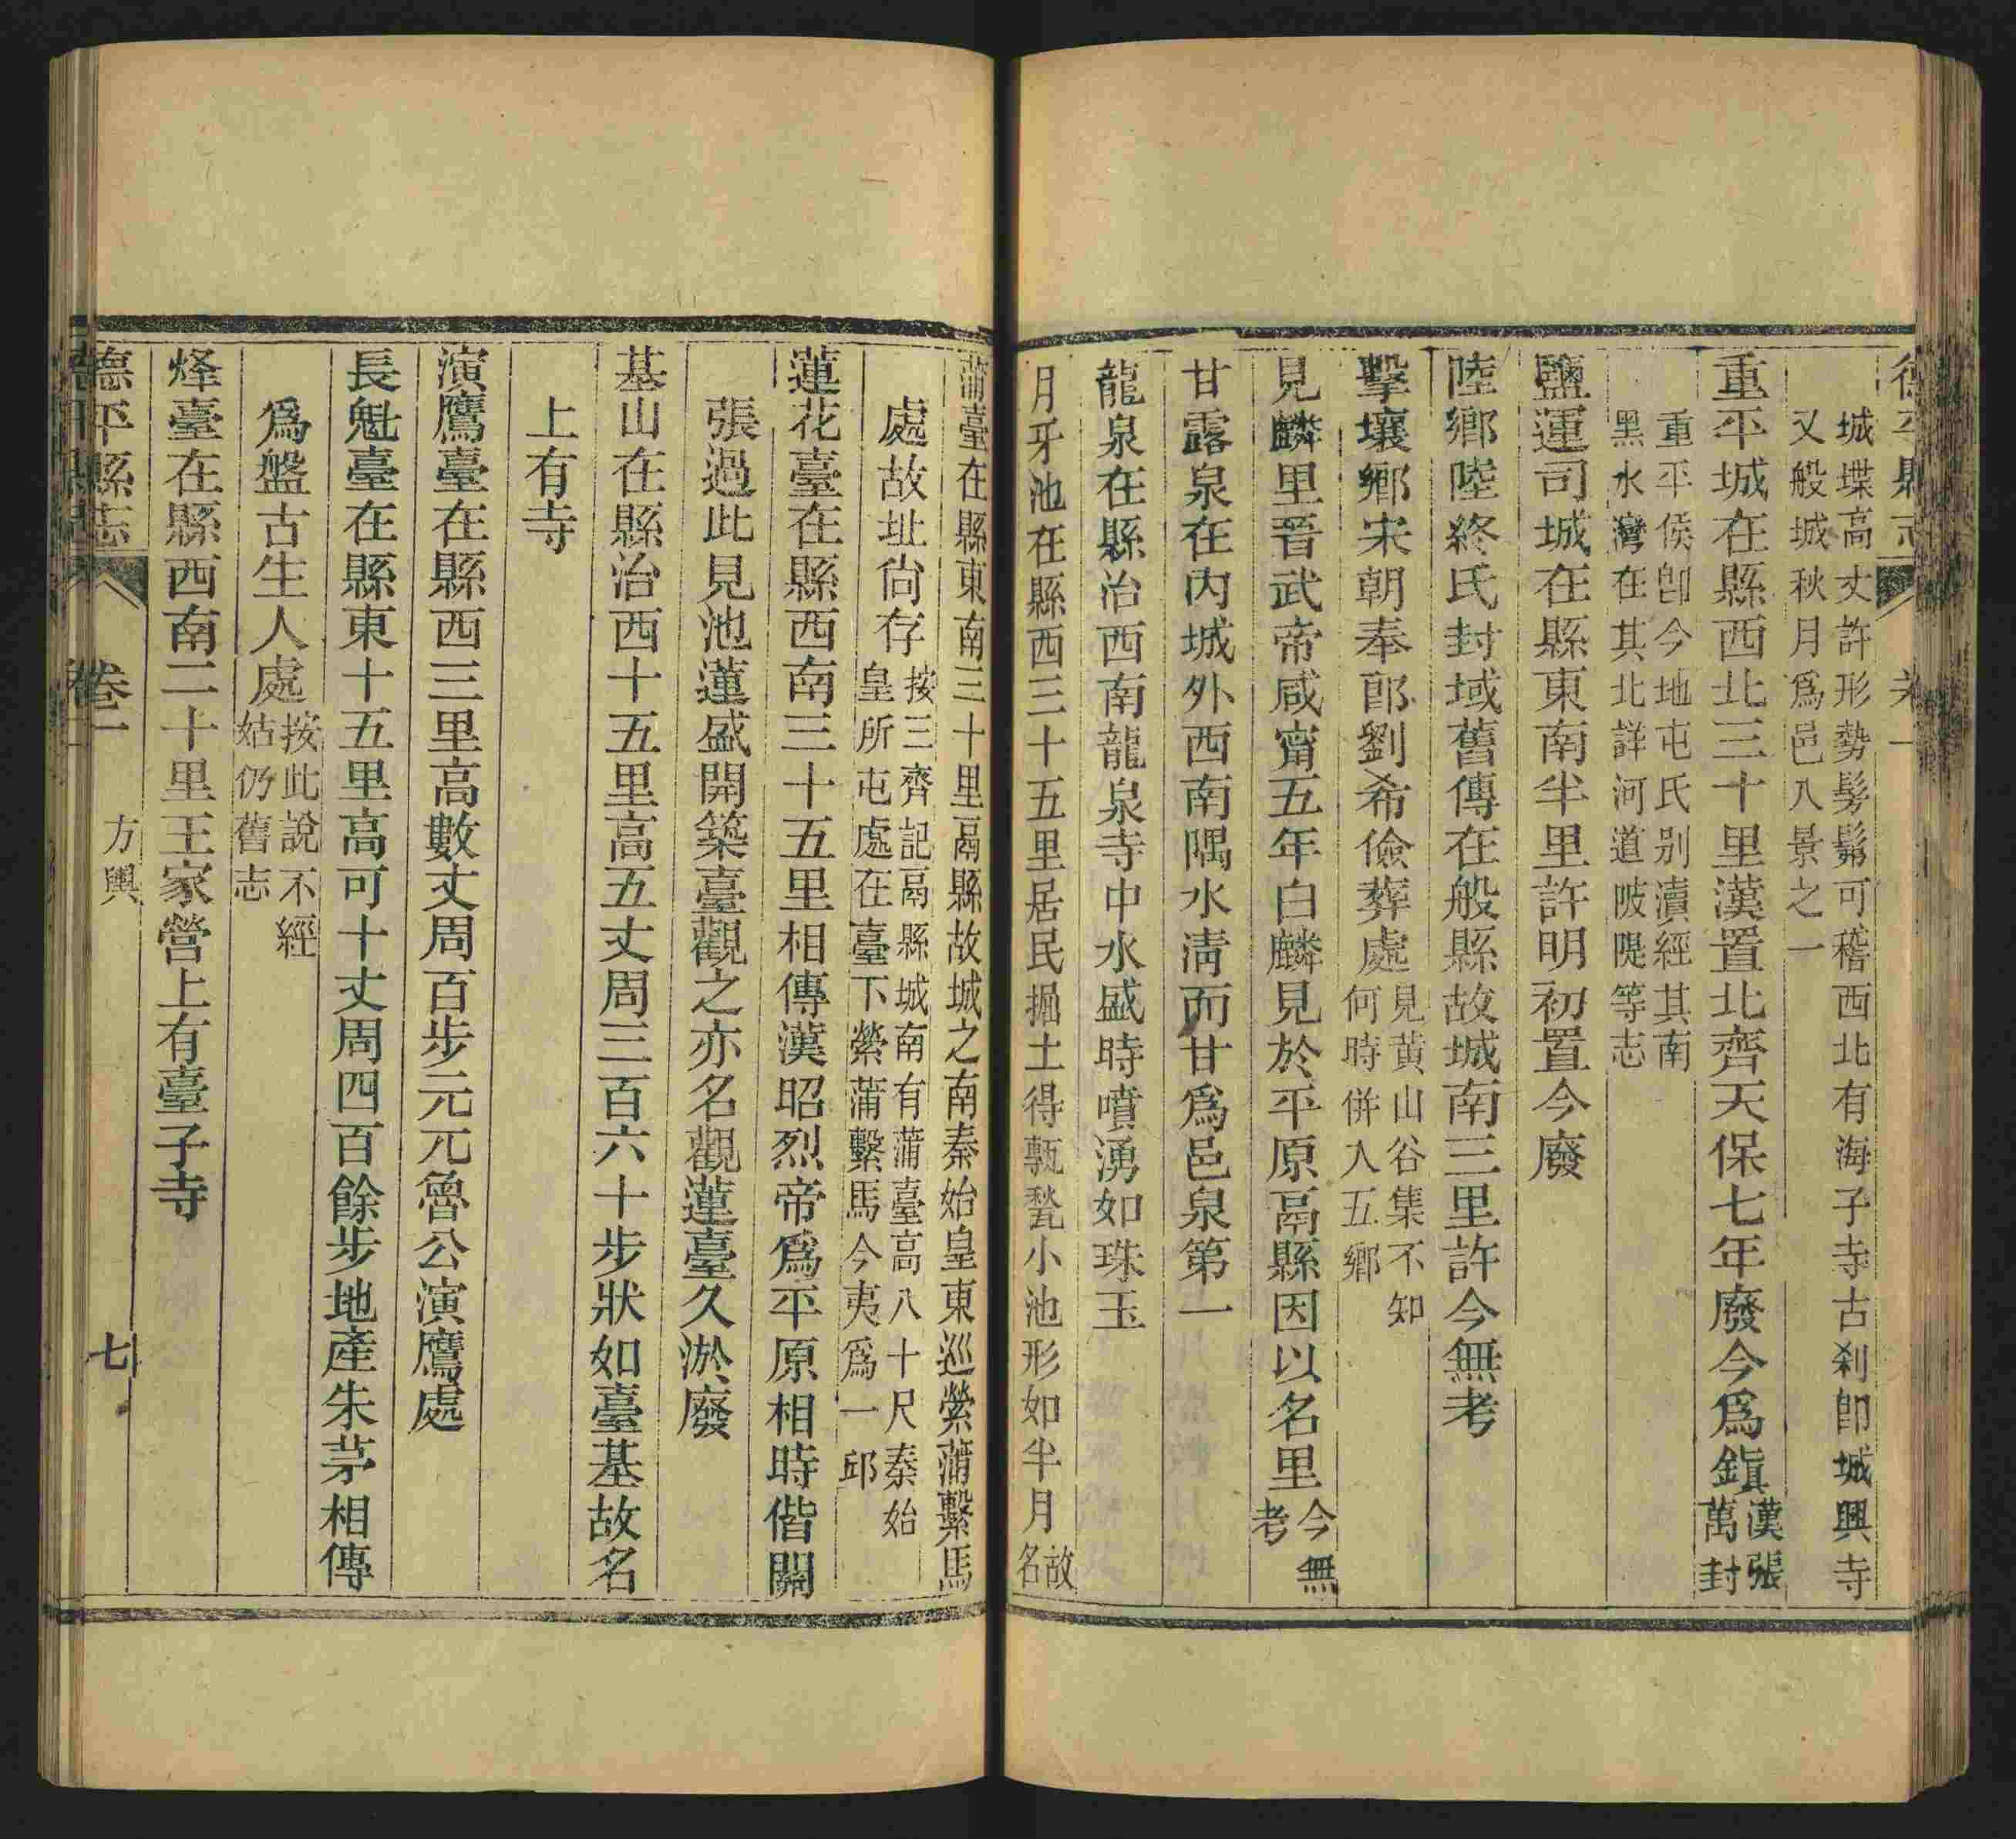 德平縣志 卷一
城堞高丈許形勢髣髴可稽西北有海子寺古刹卽城興寺
又般城秋月爲邑八景之一
重平城在縣西北三十里漢置北齊天保七年廢今爲鎭漢張
萬封
重平侯卽今地屯氏别瀆經其南
黑水灣在其北詳河道陂隄等志
鹽運司城在縣東南半里許明初置今廢
陸鄉陸終氏封域舊傳在般縣故城南三里許今無考
擊壤鄉宋朝奉郎劉希儉葬處見黃山谷集不知
何時併入五鄉
見麟里晋武帝咸甯五年白麟見於平原鬲縣因以名里今無
考
甘露泉在内城外西南隅水淸而甘爲邑泉第一
龍泉在縣治西南龍泉寺中水盛時噴湧如珠玉
月牙池在縣西三十五里居民掘土得甎甃小池形如半月故
名
蒲臺在縣東南三十里鬲縣故城之南秦始皇東巡縈蒲繫馬
處故址尙存按三齊記鬲縣城南有蒲臺高八十尺秦始
皇所屯處在臺下縈蒲繫馬今夷爲一邱
蓮花臺在縣西南三十五里相傳漢昭烈帝爲平原相時偕關
張過此見池蓮盛開築臺觀之亦名觀蓮臺久淤廢
基山在縣治西十五里高五丈周三百六十步狀如臺基故名
上有寺
演鷹臺在縣西三里高數丈周百步元兀魯公演鷹處
長魁臺在縣東十五里高可十丈周四百餘步地產朱茅相傳
爲盤古生人處按此說不經
姑仍舊志
烽臺在縣西南二十里王家營上有臺子寺
德平縣志 卷一 方輿 七